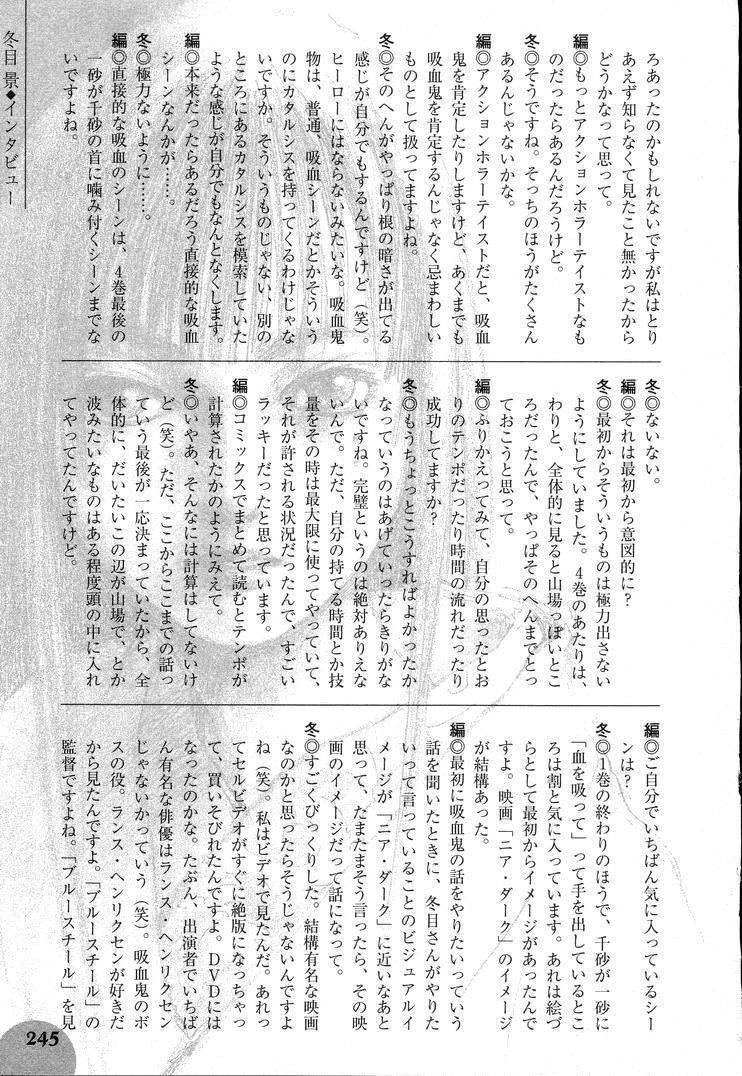 ろあったのかもしれないですが私はとり
あえず知らなくて見たこと無かったから
どうかなって思って。
編◎もっとアクションホラーテイストなも
のだったらあるんだろうけど。
冬◎そうですね。そっちのほうがたくさん
あるんじゃないかな。
編◎アクションホラーテイストだと、吸血
鬼を肯定したりしますけど、あくまでも
吸血鬼を肯定するんじゃなく忌まわしい
ものとして扱ってますよね。
冬◎そのへんがやっぱり根の暗さが出てる
感じが自分でもするんですけど（笑）。
ヒーローにはならないみたいな。吸血鬼
物は、普通、吸血シーンだとかそういう
のにカタルシスを持ってくるわけじゃな
いですか。そういうものじゃない、別の
ところにあるカタルシスを模索していた
ような感じが自分でもなんとなくします。
編◎本来だったらあるだろう直接的な吸血
シーンなんかが……。
冬◎極力ないように……。
編◎直接的な吸血のシーンは、4巻最後の
一砂が千砂の首に噛み付くシーンまでな
いですよね。
冬◎ないない。
編◎それは最初から意図的に？
冬◎最初からそういうものは極力出さない
ようにしていました。4巻のあたりは、
わりと、全体的に見ると山場っぽいとこ
ろだったんで、やっぱそのへんまでとっ
ておこうと思って。
編◎ふりかえってみて、自分の思ったとお
りのテンポだったり時間の流れだったり
成功してますか？
冬◎もうちょっとこうすればよかったか
なっていうのはあげていったらきりがな
いですね。完璧というのは絶対ありえな
いんで。ただ、自分の持てる時間とか技
量をその時は最大限に使ってやっていて、
それが許される状況だったんで、すごい
ラッキーだったと思っています。
編◎コミックスでまとめて読むとテンポが
計算されたかのようにみえて。
冬◎いやあ、そんなには計算はしてないけ
ど（笑）。ただ、ここからここまでの話っ
ていう最後が一応決まっていたから、全
体的に、だいたいこの辺が山場で、とか
波みたいなものはある程度頭の中に入れ
てやってたんですけど。
編◎ご自分でいちばん気に入っているシー
ンは？
冬◎1巻の終わりのほうで、千砂が一砂に
「血を吸って」って手を出しているとこ
ろは割と気に入っています。あれは絵づ
らとして最初からイメージがあったんで
すよ。映画「ニア・ダーク」のイメージ
が結構あった。
編◎最初に吸血鬼の話をやりたいっていう
話を聞いたときに、冬目さんがやりた
いって言っていることのビジュアルイ
メージが「ニア・ダーク」に近いなあと
思って、たまたまそう言ったら、その映
画のイメージだって話になって。
冬◎すごくびっくりした。結構有名な映画
なのかと思ったらそうじゃないんですよ
ね（笑）。私はビデオで見たんだ。あれっ
てセルビデオがすぐに絶版になっちゃっ
て、買いそびれたんですよ。DVDには
なったのかな。たぶん、出演者でいちば
ん有名な俳優はランス・ヘンリクセン
じゃないかっていう（笑）。吸血鬼のボ
スの役。ランス・ヘンリクセンが好きだ
から見たんですよ。「ブルースチール」の
監督ですよね。「ブルースチール」を見
冬目 景◆インタビュー
245